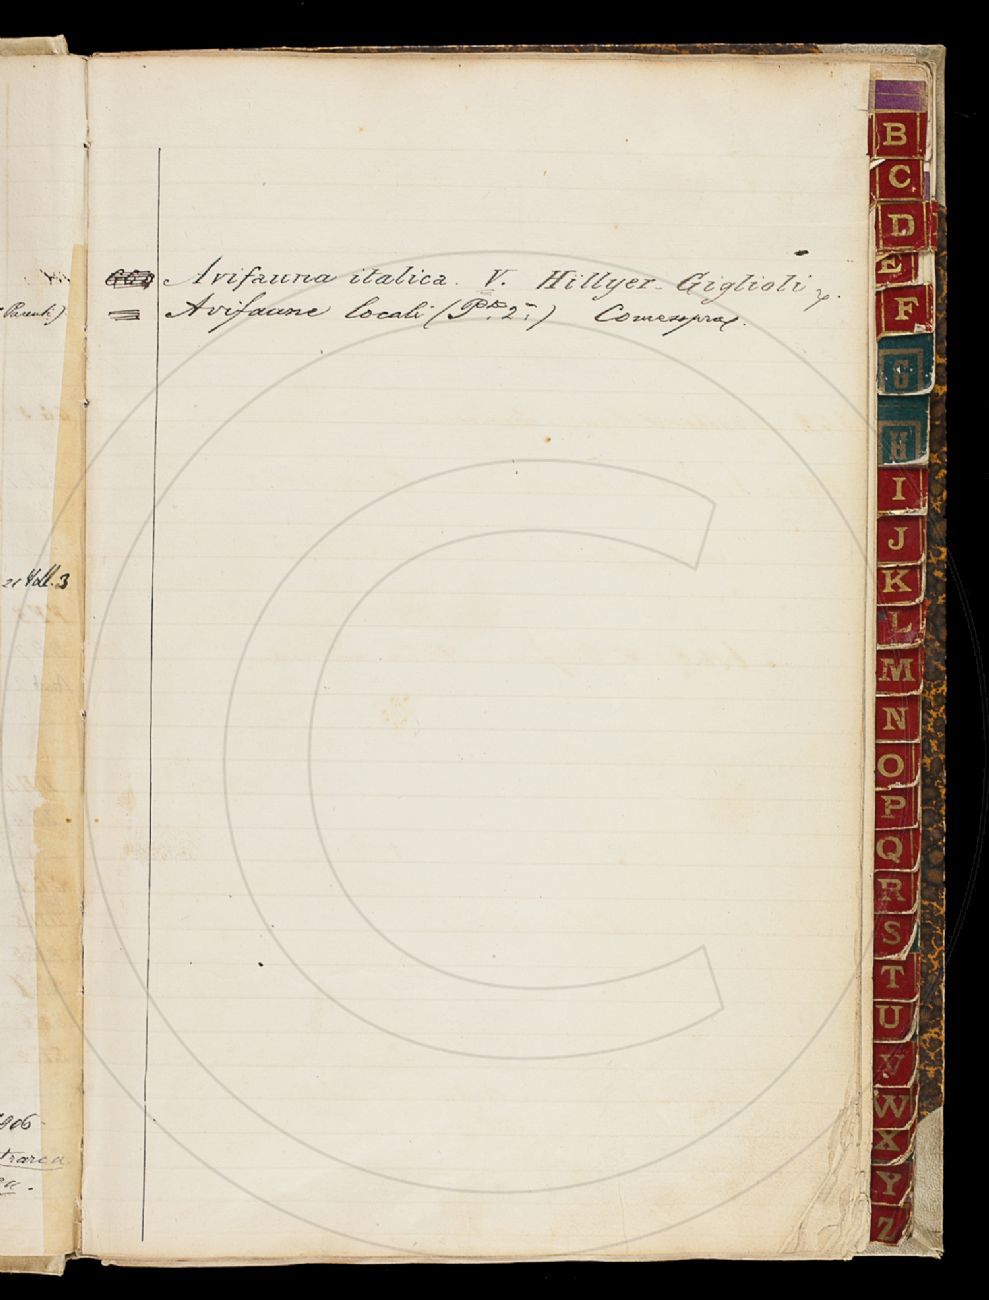 Avifauna italica. V. Hillyer-Giglioli
Avifaune locali (Pte 2a) Comesopra.
Parenti)
Vol. 3
B
C
D
E
F
G
H
I
J
K
L
M
N
O
P
Q
R
S
T
U
V
W
X
Y
Z